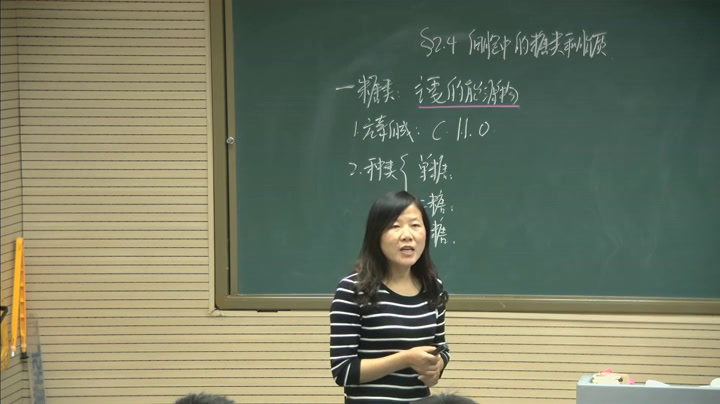 §2.4 细胞中的糖类和脂质
一糖类: 主要的能源物
1.元素组成: C.H.O
2.种类{ 单糖:
二糖:
糖.